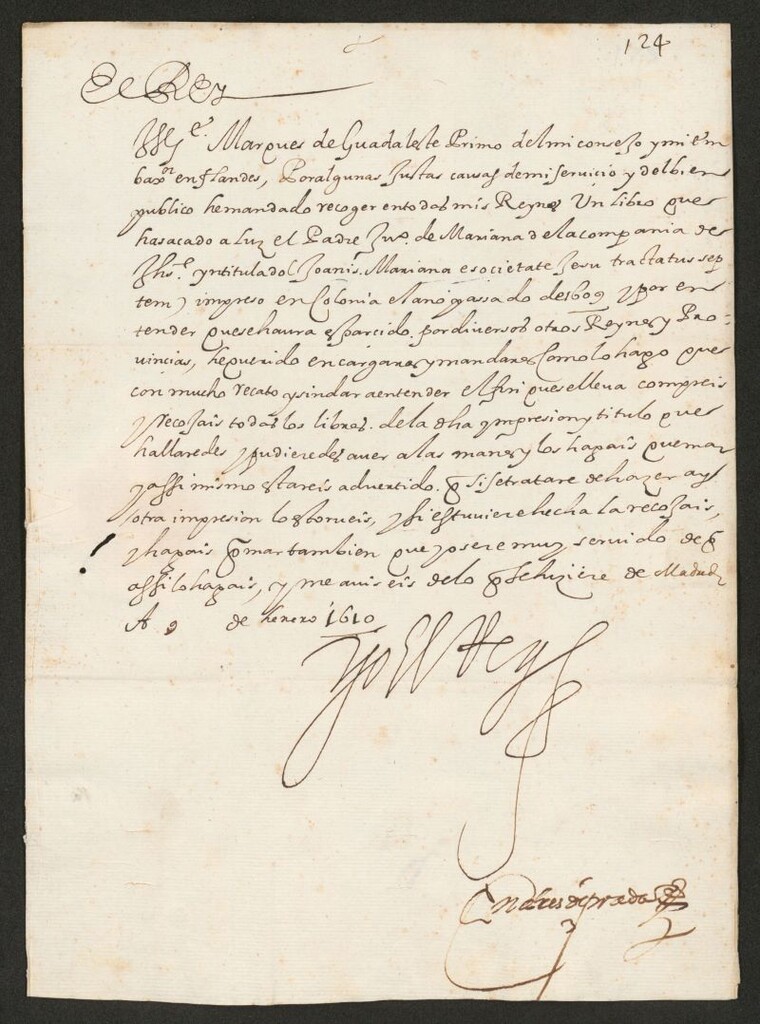 124
El Rey
Ill.e Marques de Guadaleste Primo del mi consejo y mi em
baxor en flandes, Por algunas Justas causas de mi servicio y del bien
publico he mandado recoger en todos mis Reynos Un libro que
ha sacado a luz el Padre Juo. de Mariana de la compania de
Jhs.e yntitulado (Joanis Mariana e societate Jesu tractatus sep
tem) impreso en Colonia el ano passado de 1609 y por en
tender que se haura esparcido por diversos otros Reynos y Pro
vincias, he querido encargaros y mandaros Como lo hago que
con mucho recato y sin dar a entender el fin que se lleva compreis
y recojais todos los libros de la dha ympresion y titulo que
hallaredes y pudieredes aver a las manos y los hagais quemar
y assi mismo estareis advertido q si se tratare de hazer ay
otra impresion lo estorveis, y si estuviere hecha la recojais,
y hagais qmar tambien que yo sere muy servido de q
assi lo hagais, y me aviseis de lo q se hiziere de Madrid
A 9 de henero 1610
Yo El Rey
Andres de prada